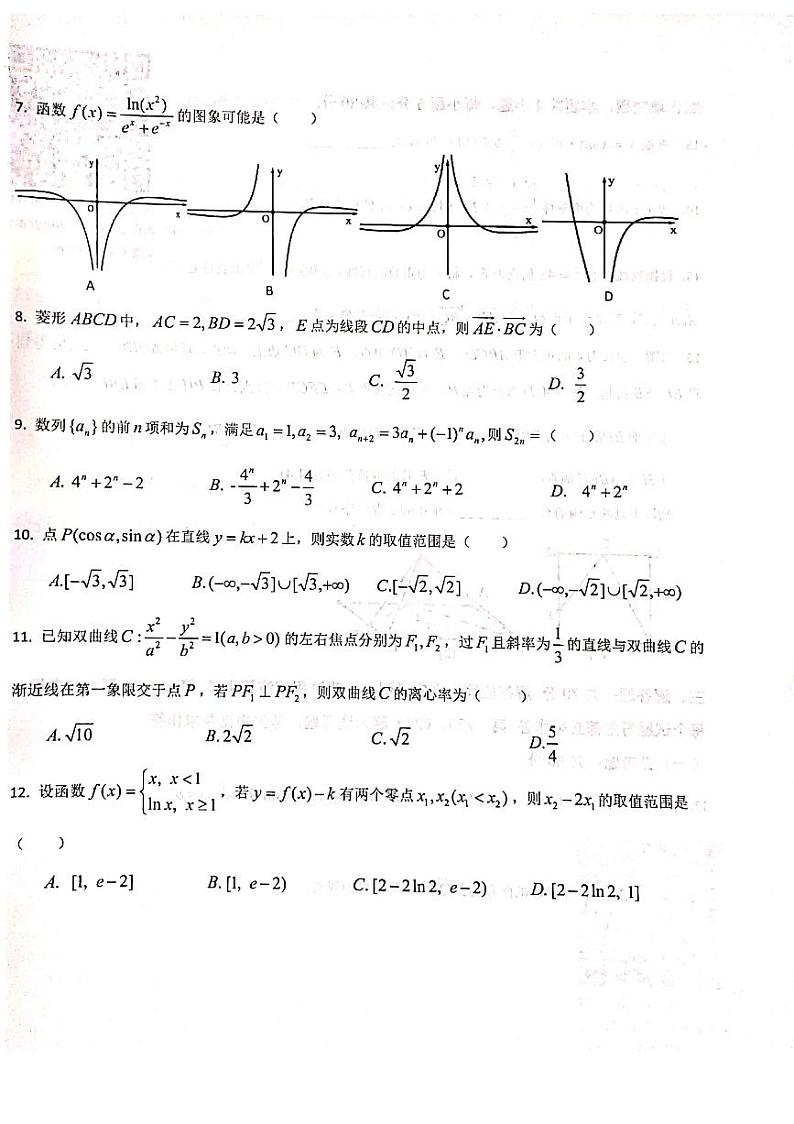 7. 函数 f(x) = ln(x²) / (eˣ + e⁻ˣ) 的图象可能是（ ）
y
0
x
A
y
O
x
B
y
O
x
C
y
O
x
D
8. 菱形 ABCD 中， AC = 2, BD = 2√3 ， E 点为线段 CD 的中点，则 →AE · →BC 为（ ）
A. √3 B. 3 C. √3/2 D. 3/2
9. 数列 {aₙ} 的前 n 项和为 Sₙ，满足 a₁ = 1, a₂ = 3, aₙ₊₂ = 3aₙ + (−1)ⁿ aₙ, 则 S₂ₙ =（ ）
A. 4ⁿ + 2ⁿ − 2 B. -4ⁿ/3 + 2ⁿ − 4/3 C. 4ⁿ + 2ⁿ + 2 D. 4ⁿ + 2ⁿ
10. 点 P(cos α, sin α) 在直线 y = kx + 2 上，则实数 k 的取值范围是（ ）
A.[−√3, √3] B.(−∞, −√3]∪[√3, +∞) C.[−√2, √2] D.(−∞, −√2]∪[√2, +∞)
11. 已知双曲线 C : x²/a² − y²/b² = 1(a, b > 0) 的左右焦点分别为 F₁, F₂ ，过 F₁ 且斜率为 1/3 的直线与双曲线 C 的
渐近线在第一象限交于点 P ，若 PF₁ ⊥ PF₂，则双曲线 C 的离心率为（ ）
A. √10 B. 2√2 C. √2 D. 5/4
12. 设函数 f(x) = { x, x < 1; ln x, x ≥ 1 ，若 y = f(x) − k 有两个零点 x₁, x₂ (x₁ < x₂) ，则 x₂ − 2x₁ 的取值范围是
（ ）
A. [1, e−2] B. [1, e−2) C. [2−2ln 2, e−2) D. [2−2ln 2, 1]